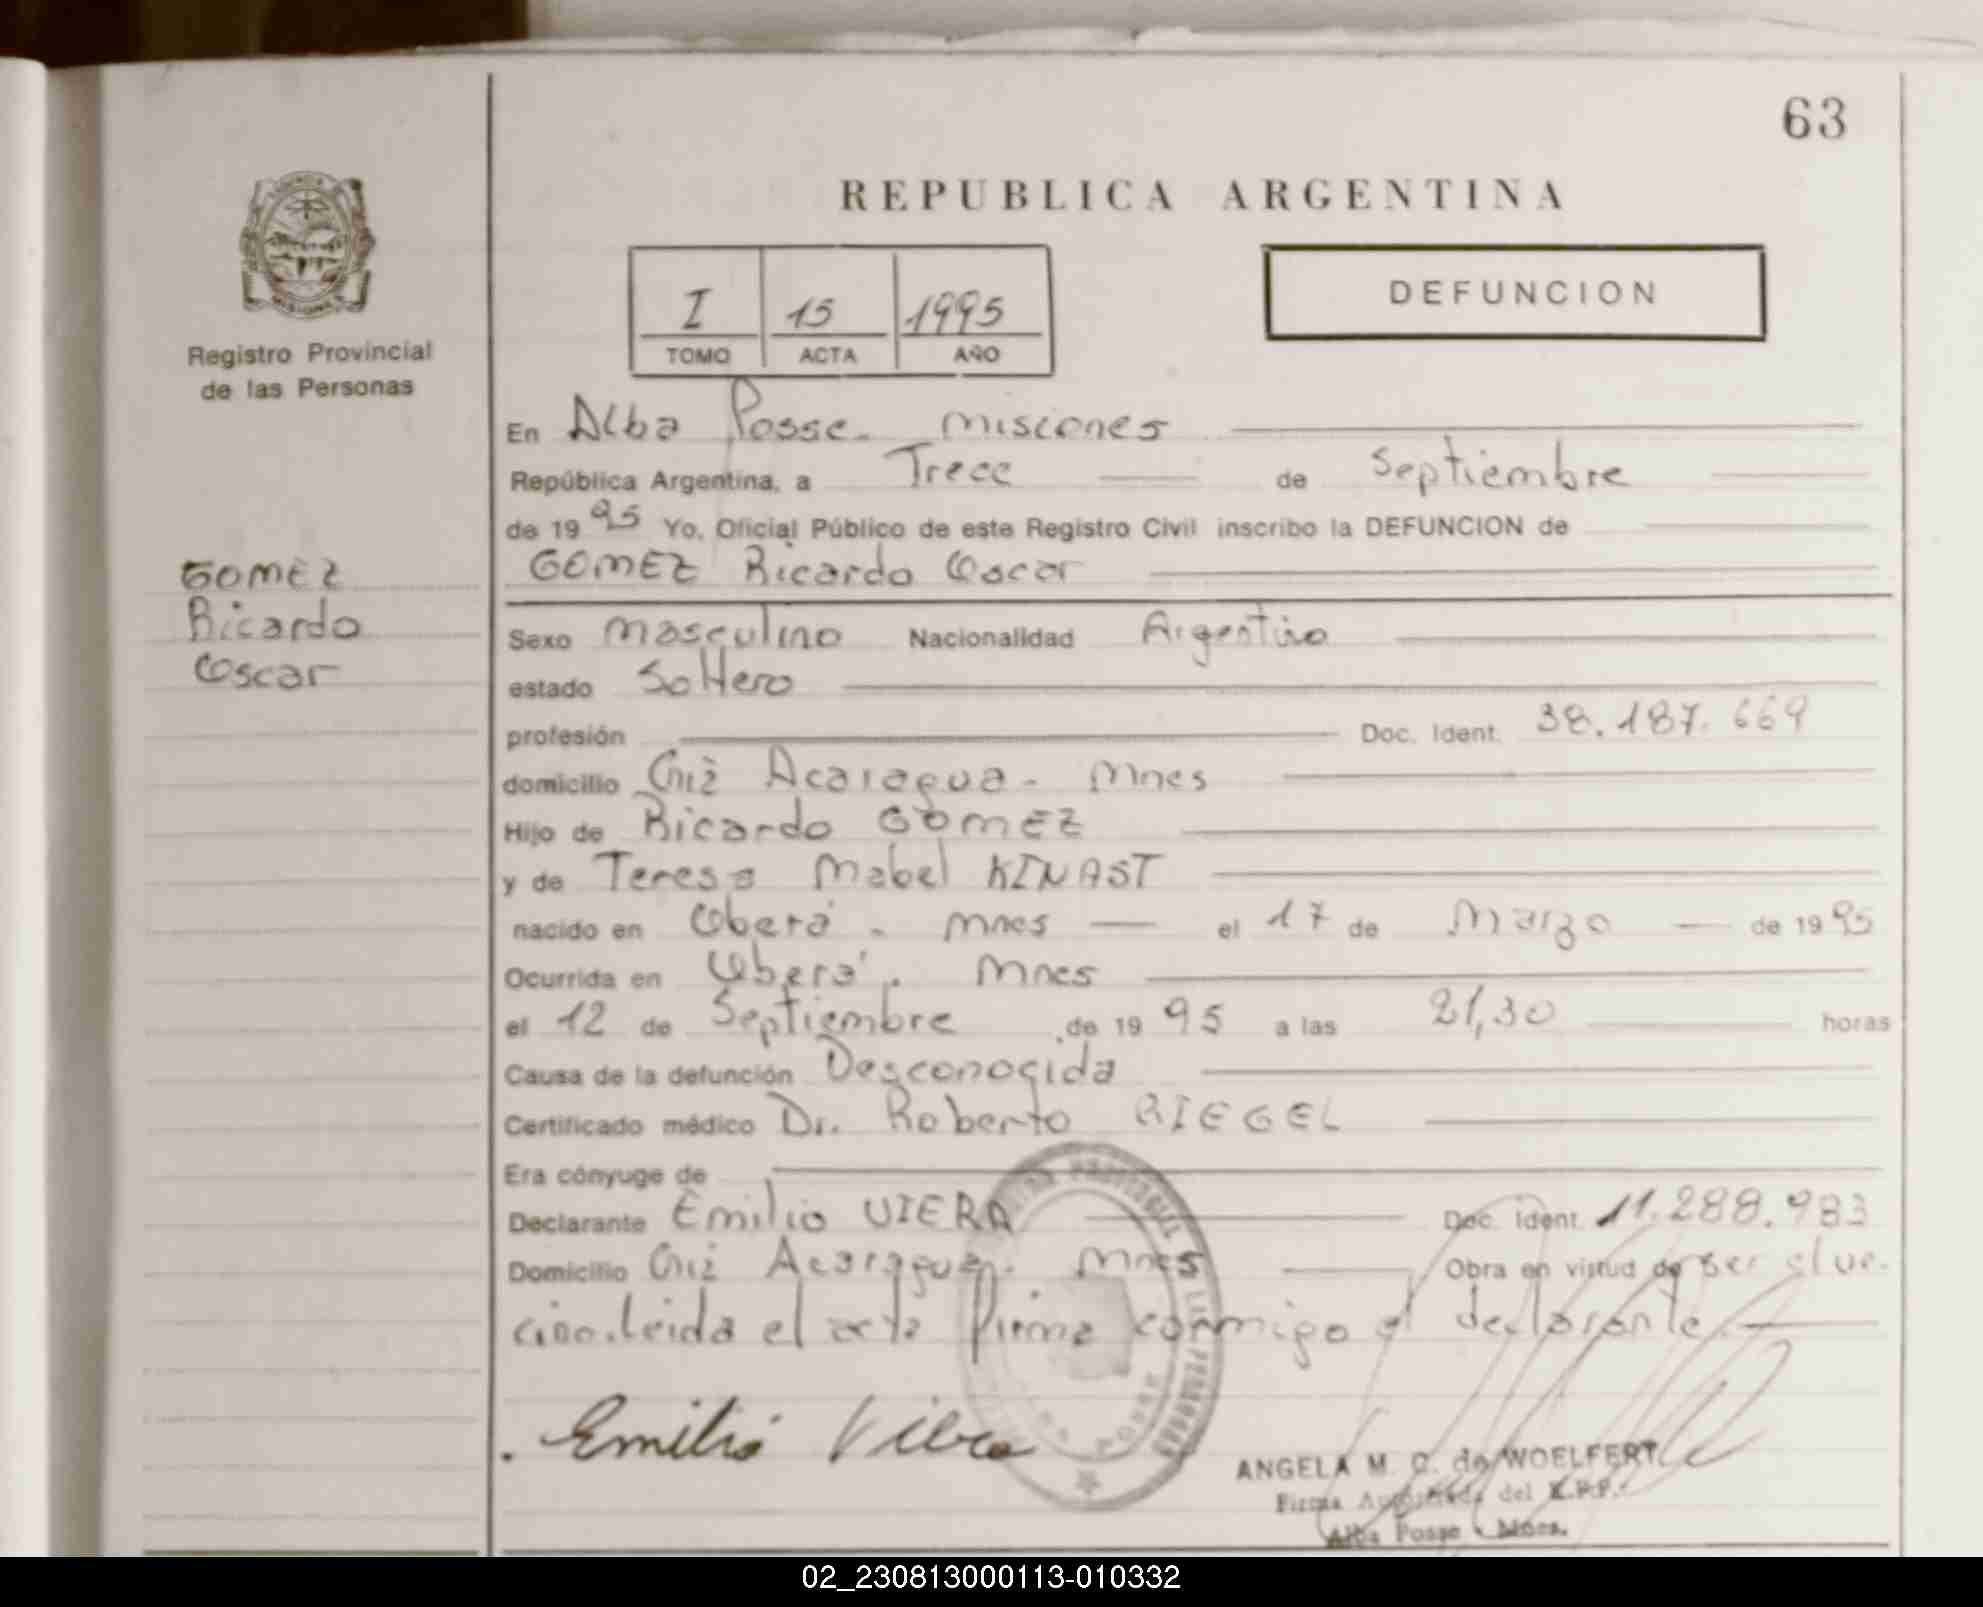 63
REPUBLICA ARGENTINA
I 15 1995
TOMO ACTA AÑO
DEFUNCION
Registro Provincial
de las Personas
GOMEZ
Ricardo
Oscar
En Alba Posse - Misiones
República Argentina, a Trece de Septiembre
de 1995 Yo, Oficial Público de este Registro Civil inscribo la DEFUNCION de
GOMEZ Ricardo Oscar
Sexo Masculino Nacionalidad Argentino
estado Soltero
profesión Doc. Ident. 38.187.669
domicilio Acaragua - Mnes
Hijo de Ricardo GOMEZ
y de Teresa Mabel KINAST
nacido en Oberá - Mnes el 17 de Marzo de 1995
Ocurrida en Oberá . Mnes
el 12 de Septiembre de 1995 a las 21,30 horas
Causa de la defunción Desconocida
Certificado médico Dr. Roberto RIEGEL
Era cónyuge de
Declarante Emilio VIERA Doc. Ident. 11.288.983
Domicilio Acaragua. Mnes Obra en virtud de ser el ve-
cino. Leida el acta firma conmigo el declarante.
Emilio Viera
ANGELA M. C. de WOELFERT
Firma Autorizada del R.P.P.
Alba Posse - Mnes.
02_230813000113-010332